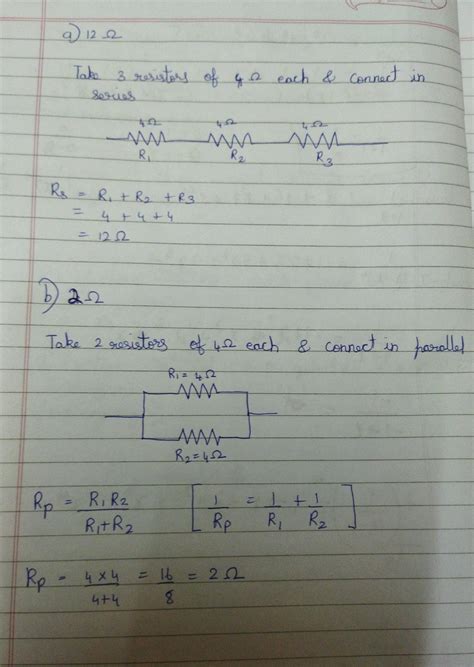 a) 12 Ω
Take 3 resistors of 4 Ω each & connect in
series
4Ω 4Ω 4Ω
R₁ R₂ R₃
Rs = R₁ + R₂ + R₃
= 4 + 4 + 4
= 12 Ω
b) 2 Ω
Take 2 resistors of 4Ω each & connect in parallel
R₁ = 4 Ω
R₂ = 4Ω
Rp = R₁ R₂ / R₁ + R₂ [ 1/Rp = 1/R₁ + 1/R₂ ]
Rp = 4 × 4 / 4+4 = 16/8 = 2 Ω